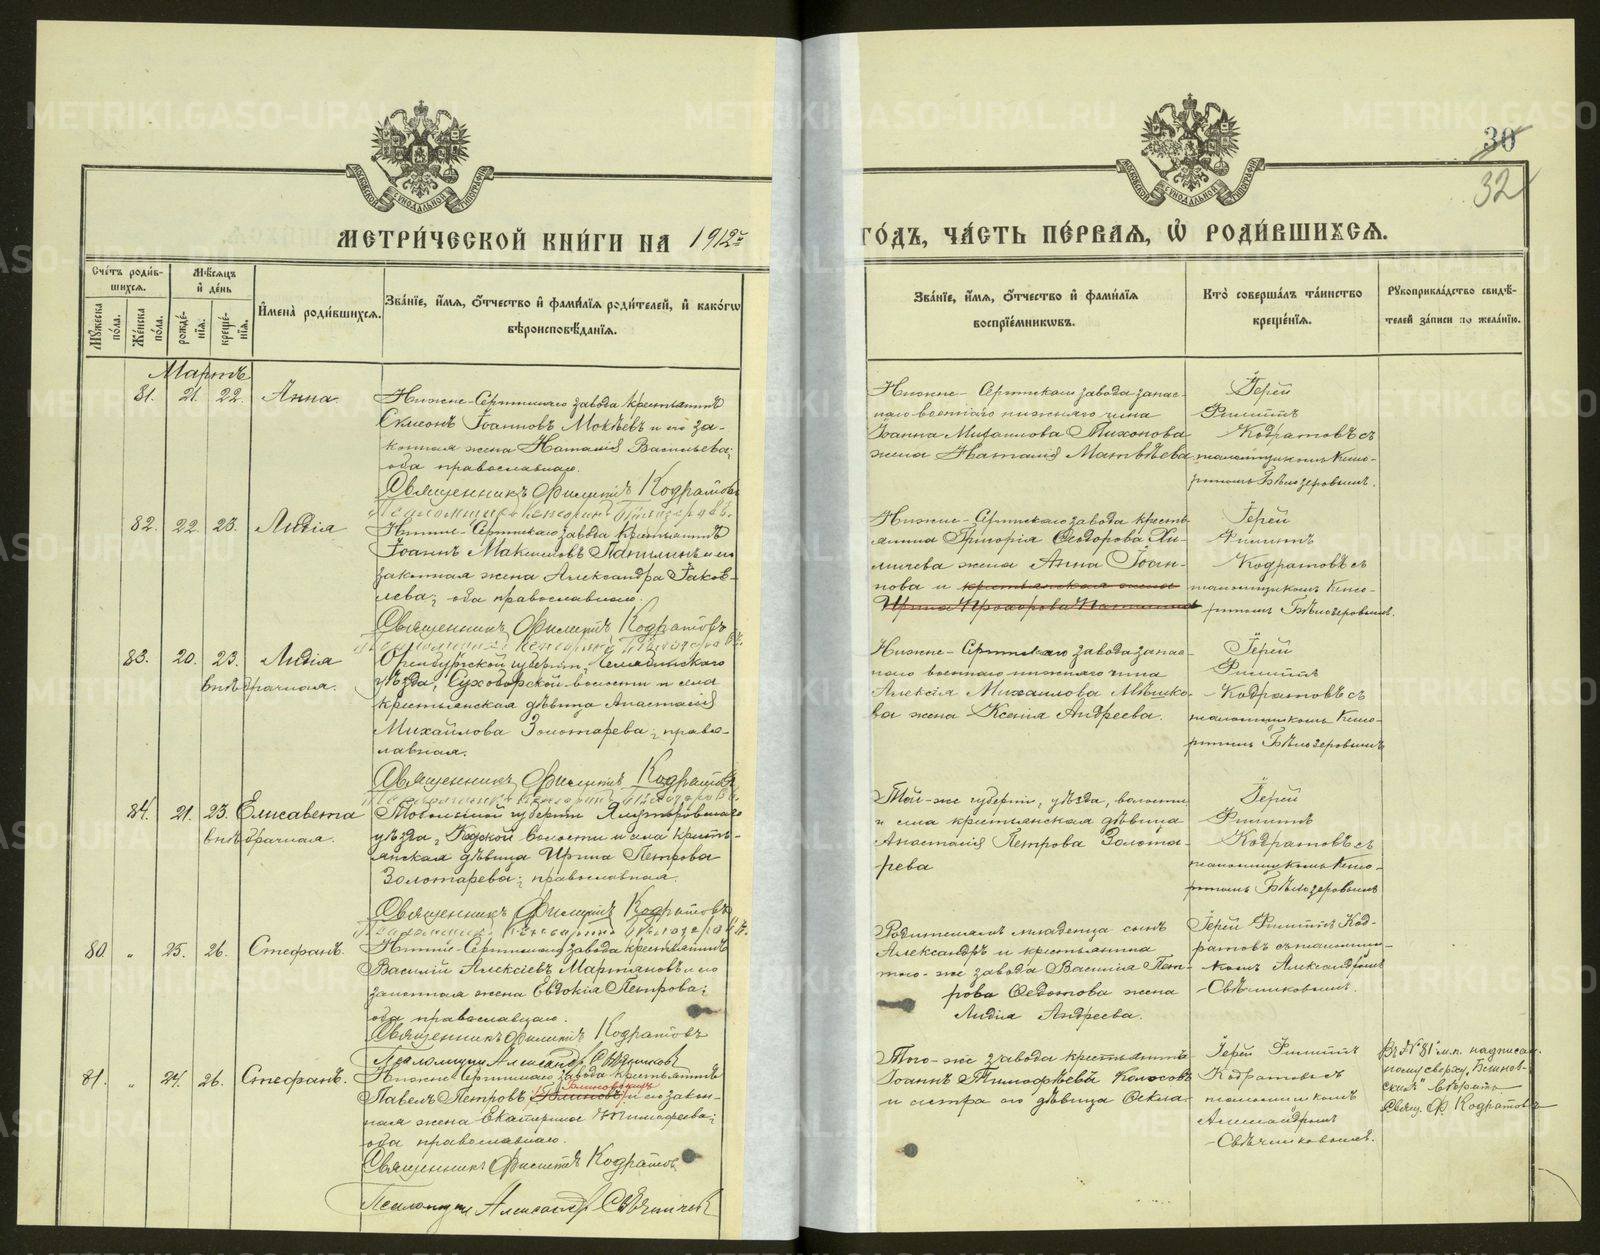 METRIKI.GASO-URAL.RU
30
32
МЕТРИ́ЧЕСКОЙ КНИ́ГИ НА 1912
ГО́ДЪ, ЧА́СТЬ ПЕ́РВАЯ, Ѿ РОДИ́ВШИХСЯ.
Сче́тъ роди́в-
шихся.
Мꙋ́жеска по́ла.
Же́нска по́ла.
Мѣ́сяцъ
и҆ де́нь
рожде́-
нїя.
креще́-
нїя.
И҆мена̀ роди́вшихся.
Зва́нїе, и҆́мя, ѻ҆́тчество и҆ фами́лїя роди́телей, и҆ како́гѡ
вѣроисповѣ́данїя.
Зва́нїе, и҆́мя, ѻ҆́тчество и҆ фами́лїя
воспрїе́мниковъ.
Кто̀ соверша́лъ та́инство
креще́нїя.
Рꙋкоприкла́дство свидѣ́-
телей за́писи по жела́нїю.
Мартъ
81. 21. 22. Анна.
Нижне-Сергинскаго завода крестьянинъ
Симеонъ Іоанновъ Мокѣевъ и его за-
конная жена Наталія Васильева;
оба православнаго.
Священникъ Филиппъ Кодратовъ
Нижне-Сергинскаго завода запас-
наго военнаго нижняго чина
Іоанна Михаилова Тихонова
жена Наталія Матвѣева.
Іерей
Филиппъ
Кодратовъ съ
псаломщикомъ Вено-
Бѣлозеровымъ.
82. 22. 23. Лидія
Нижне-Сергинскаго завода крестьянинъ
Іоаннъ Максимовъ Папилинъ и его
законная жена Александра Іаков-
лева; оба православнаго.
Священникъ Филиппъ Кодратовъ
Нижне-Сергинскаго завода кресть-
янина Григорія Ѳеодорова Хи-
мичева жена Анна Іоан-
нова и крестьянская жена
Ирина Прохорова
Іерей
Филиппъ
Кодратовъ съ
псаломщикомъ
Бѣлозеровымъ.
83. 20. 23. Лидія
внѣбрачная.
Оренбургской губерніи, Челябинскаго
уѣзда, Сухоборской волости и села
крестьянская дѣвица Анастасія
Михайлова Золотарева; право-
славная.
Священникъ Филиппъ Кодратовъ
Нижне-Сергинскаго завода запас-
наго военнаго нижняго чина
Алексія Михаилова Мѣшко-
ва жена Ксенія Андреева.
Іерей
Филиппъ
Кодратовъ съ
псаломщикомъ
Бѣлозеровымъ
84. 21. 23. Елисавета
внѣбрачная.
Тобольской губерніи Ялуторовскаго
уѣзда, волости и села кресть-
янская дѣвица Ирина Петрова
Золотарева; православная.
Священникъ Филиппъ Кодратовъ
Той-же губерніи, уѣзда, волости
и села крестьянская дѣвица
Анастасія Петрова Золота-
рева
Іерей
Филиппъ
Кодратовъ съ
псаломщикомъ
Бѣлозеровымъ
80. „ 25. 26. Стефанъ.
Нижне-Сергинскаго завода крестьянинъ
Василій Алексіевъ Мартьяновъ и его
законная жена Евдокія Петрова;
оба православнаго.
Священникъ Филиппъ Кодратовъ
Псаломщикъ Александръ Свѣчниковъ
Родителямъ младенца сынъ
Александръ и крестьянина
того-же завода Василія Пет-
рова Ѳедотова жена
Лидія Андреева.
Іерей Филиппъ Код-
ратовъ съ псаломщи-
комъ Александромъ
Свѣчниковымъ.
81. „ 24. 26. Стефанъ.
Нижне-Сергинскаго завода крестьянинъ
Блиновскихъ
Павелъ Петровъ Блиновъ и его закон-
ная жена Екатерина Тимофеева;
оба православнаго.
Священникъ Филиппъ Кодратовъ
Псаломщикъ Александръ Свѣчниковъ
Того-же завода крестьянинъ
Іоаннъ Тимофѣевъ Колосовъ
и сестра его дѣвица Ѳекла.
Іерей Филиппъ
Кодратовъ съ
псаломщикомъ
Александромъ
Свѣчниковымъ.
Въ № 81 м.п. надписан-
ному сверху „Блинов-
скихъ" вѣрить
Свящ. Ф. Кодратовъ